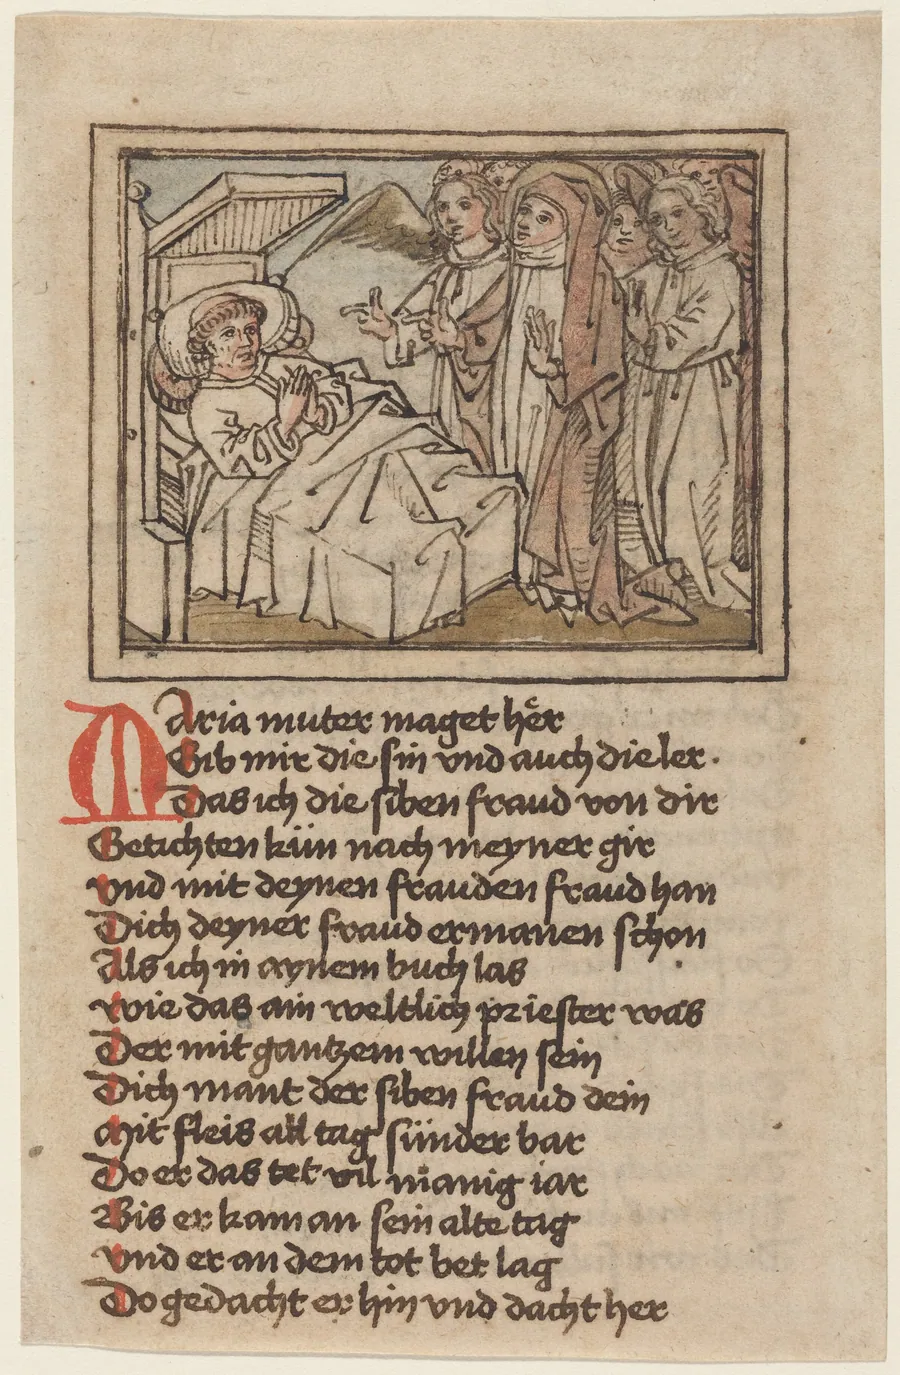 MAria muter maget hër
Gib mir die sin vnd auch die ler.
Das ich die siben fraud von dir
Getichten kün nach meyner gir
vnd mit deynen frauden fraud han
Dich deyner fraud ermanen schon
Als ich in aynem buch las
wie das ain weltlich priester was
Der mit gantzem willen sein
Dich mant der siben fraud dein
Mit fleis all tag sünder bar
Do er das tet vil manig iar
Bis er kam an sein alte tag
vnd er an dem tot bet lag
Do gedacht er hin vnd dacht her